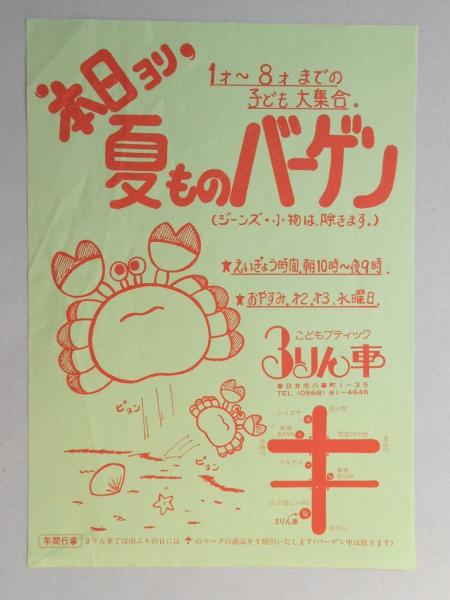 本日ヨリ,
1才〜8才までの
子ども大集合.
夏ものバーゲン
(ジーンズ・小物は、除きます。)
★えいぎょう時間,朝10時〜夜9時.
★おやすみ,才2,才3,水曜日.
こどもブティック
3りん車
春日井市八事町1-35
TEL〈0568〉81-4646
ピョン
ピョン
シミズヤ
東海
BANK
マルヤス
東海
BANK
3りん車
年間行事
3りん車では雨ふりの日には
のマークの商品を1割引いたします(バーゲン中は除きます)